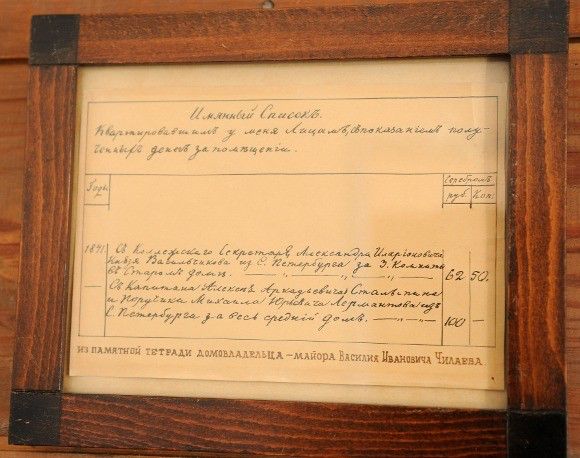 Имянный Списокъ.
Квартировавшимъ у меня Лицамъ, съ показанiемъ полу-
ченныхъ денегъ за помѣщенiи.
Годы
Серебромъ
руб. Коп.
1841. Съ Коллежскаго Секретаря, Александра Иларiоновича
Князя Васильчикова из С. Петербурга за 3. Комнаты
въ Старомъ домѣ. — „ — „ — „ — 62 50.
— Съ Капитана Алексея Аркадьевича Столыпина
и Поручика Михаила Юрьевича Лермантова изъ
С. Петербурга за весь среднiй домъ. — „ — „ — 100 —
ИЗ ПАМЯТНОЙ ТЕТРАДИ ДОМОВЛАДЕЛЬЦА – МАЙОРА ВАСИЛИЯ ИВАНОВИЧА ЧИЛАЕВА.